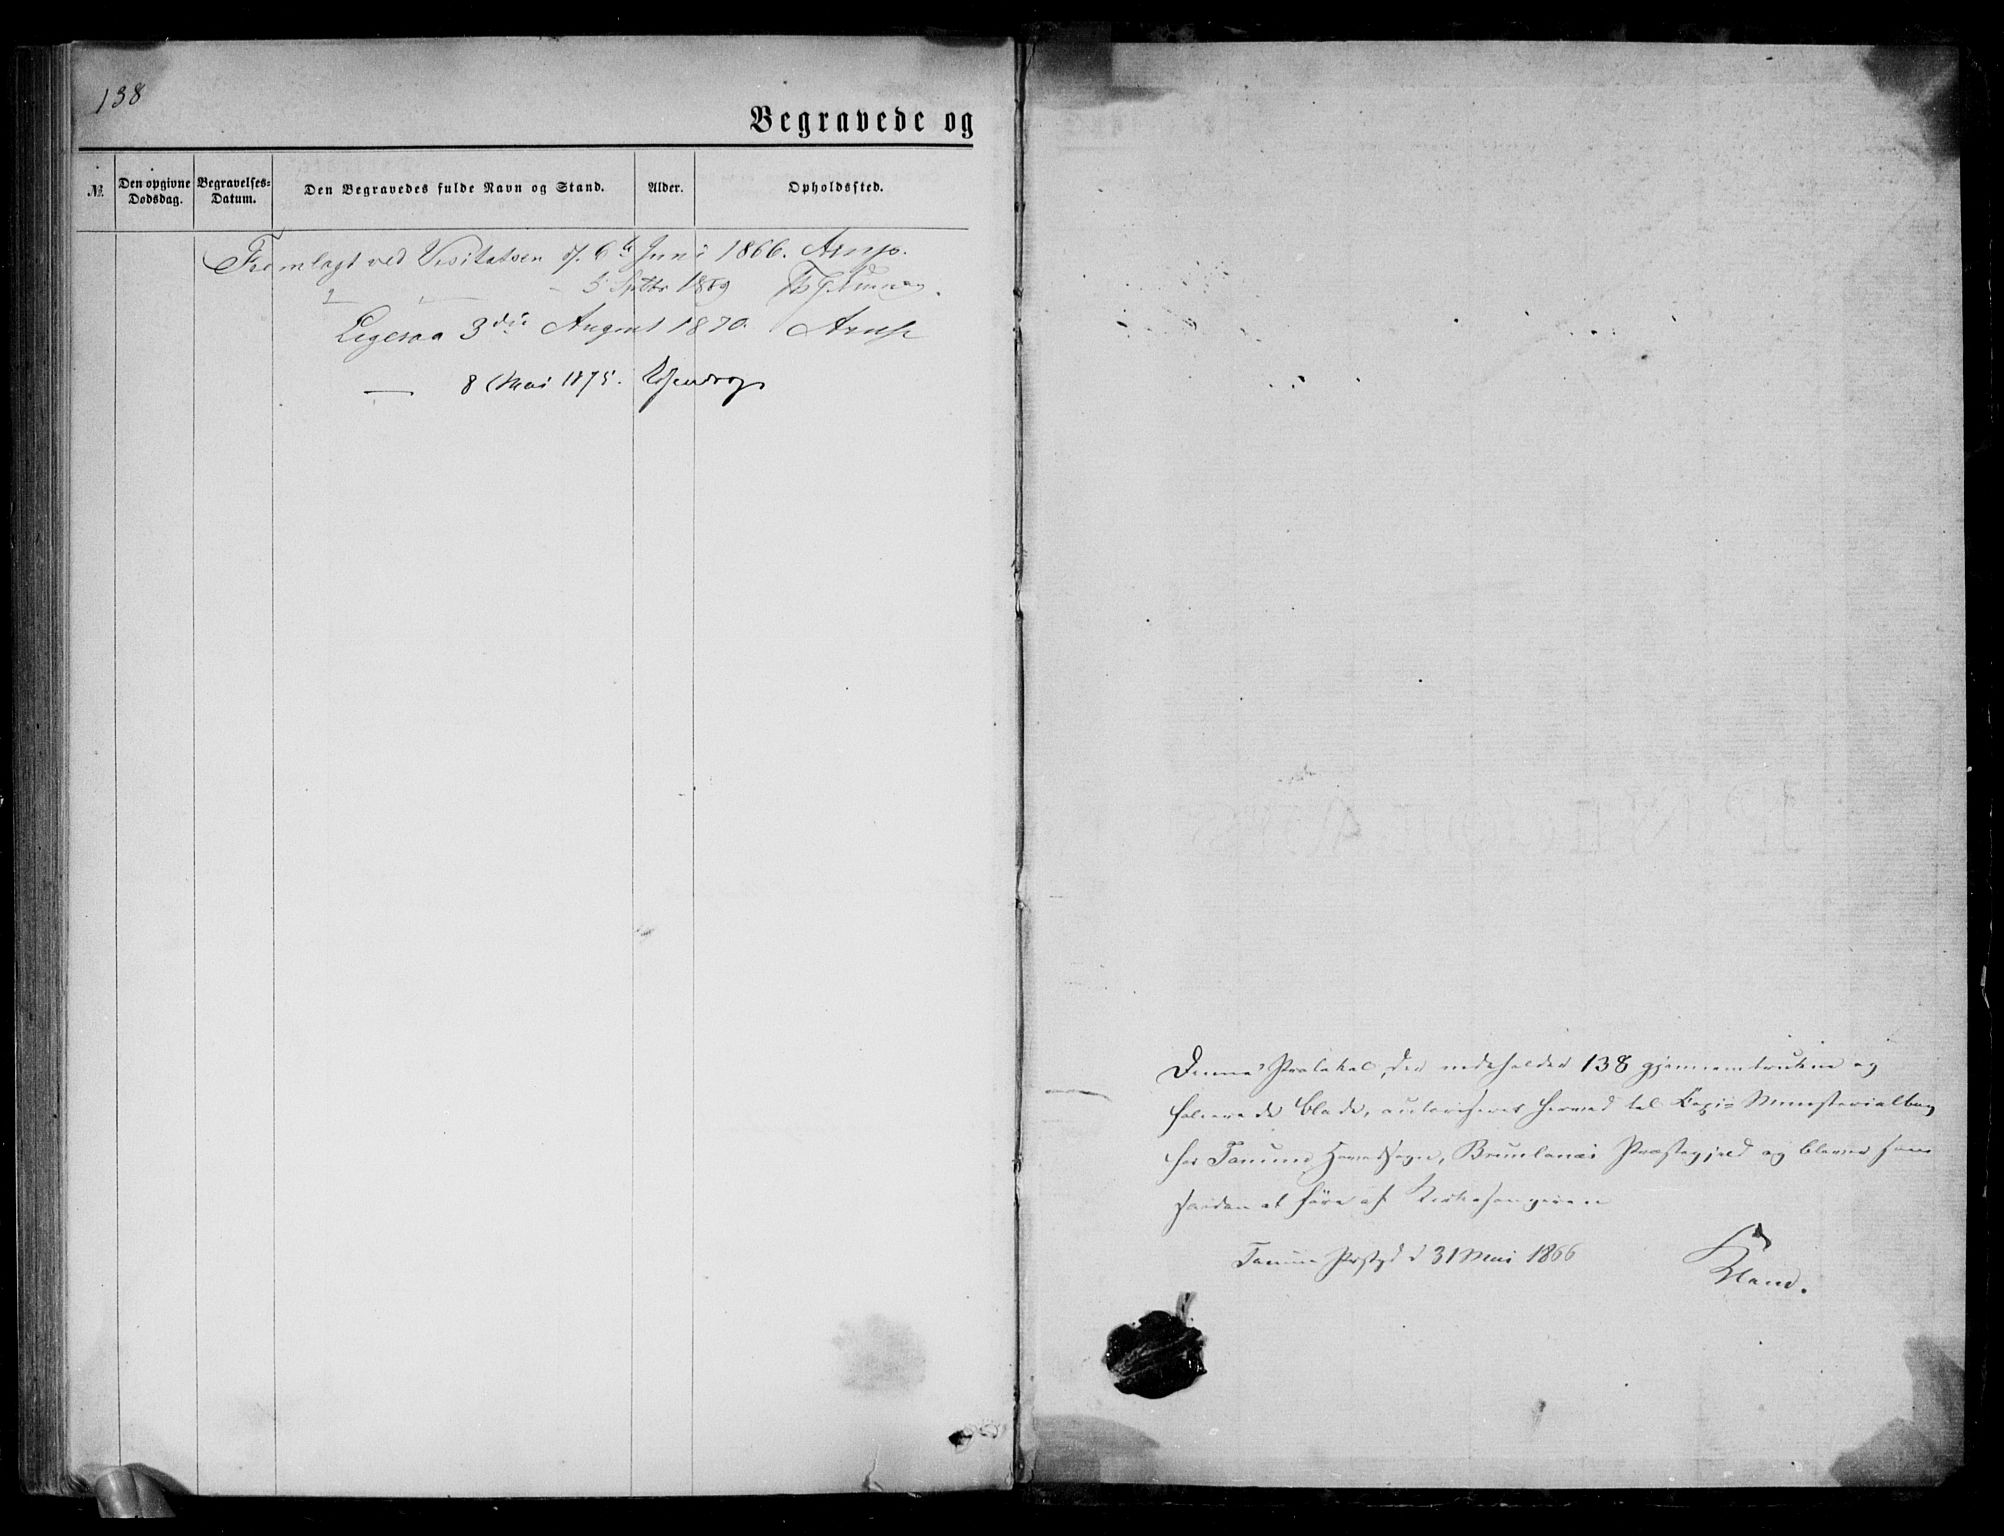 138
Begravede og
№
Den opgivne Dødsdag.
Begravelses-Datum.
Den Begravedes fulde Navn og Stand.
Alder.
Opholdssted.
Fremlagt ved Visitatsen d. 6te Juni 1866. Arup.
5 Septbr 1869
Ligesaa 3die August 1870. Arup
— 8 Mai 1875.
Denne Protokol, der indeholder 138 gjennemtrukne og
folierede Blade, autoriseres herved til Copi-Ministerialbog
for Tanum Hovedsogn, Brunlanæs Præstegjeld og bliver som
saadan at føre af Kirkesangeren
Tanum Prstgd d 31 Mai 1866